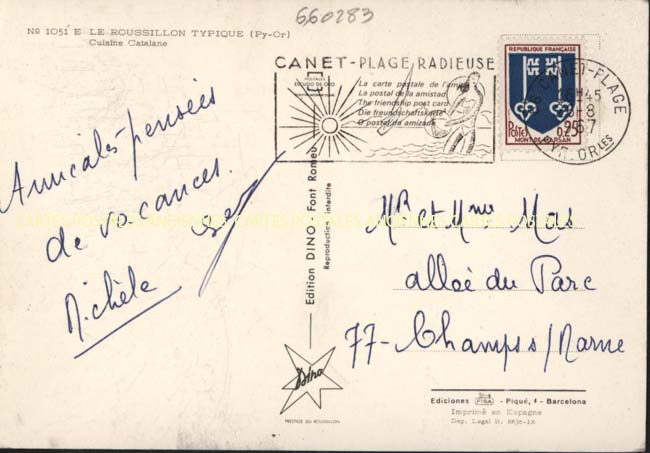 660283
Nº 1051 E LE ROUSSILLON TYPIQUE (Py-Or)
Cuisine Catalane
CANET-PLAGE RADIEUSE
POSTALES
ESCUDO DE ORO
La carte postale de l'amitié
La postal de la amistad
The friendship post card
Die freundschaftskarte
O postal da amizade
REPUBLIQUE FRANÇAISE
POSTES
0,25
MONT-DE-MARSAN
CANET-PLAGE
16H45
1967
PYR. ORles
Amicales pensées
de vacances.
Michèle
Mr et Mme Mas
allée du Parc
77-Champs s/Marne
Edition DINO - Font Romeu
Reproduction interdite
Dino
PRESTIGE DU ROUSSILLON
Ediciones FISA - Piqué, 4 - Barcelona
Imprimé en Espagne
Dep. Legal B. 6836-IX